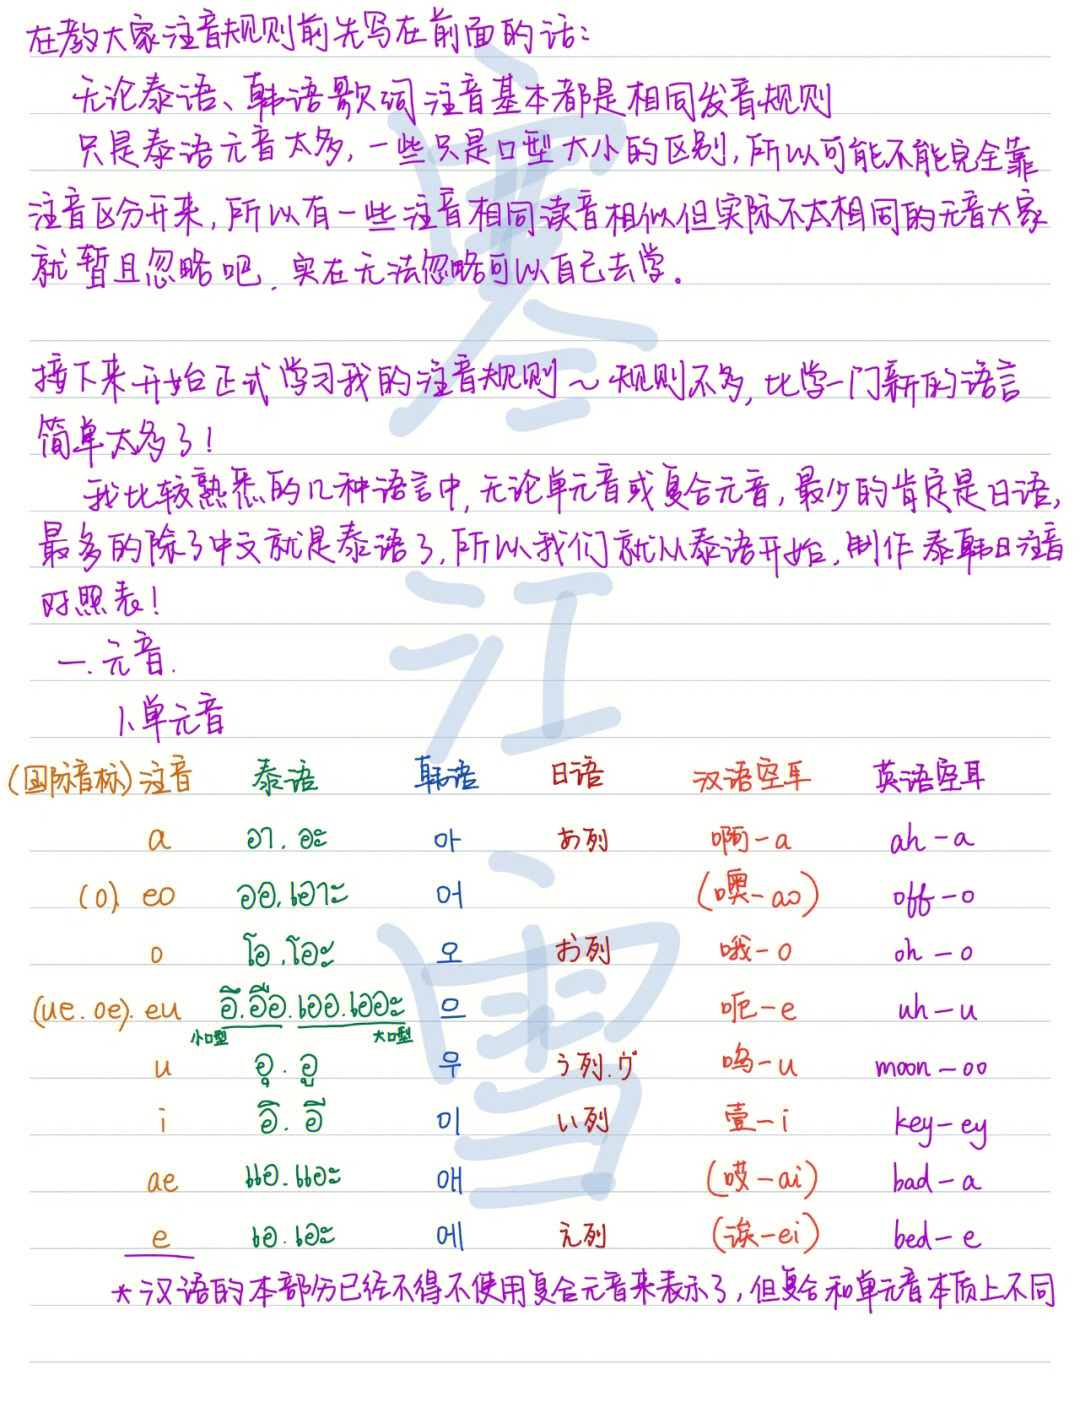 在教大家注音规则前先写在前面的话:
无论泰语、韩语歌词注音基本都是相同发音规则
只是泰语元音太多,一些只是口型大小的区别,所以可能不能完全靠
注音区分开来,所以有一些注音相同读音相似但实际不太相同的元音大家
就暂且忽略吧.实在无法忽略可以自己去学。
接下来开始正式学习我的注音规则~规则不多,比学一门新的语言
简单太多了!
我比较熟悉的几种语言中,无论单元音或复合元音,最少的肯定是日语,
最多的除了中文就是泰语了,所以我们就从泰语开始,制作泰韩日注音
对照表!
一.元音.
1.单元音
(国际音标)注音 泰语 韩语 日语 汉语空耳 英语空耳
a อา.อะ 아 あ列 啊-a ah-a
(o). eo ออ.เอาะ 어 (噢-ao) off-o
o โอ.โอะ 오 お列 哦-o oh-o
(ue.oe).eu อึ.อือ.เออ.เออะ 으 呃-e uh-u
小口型 大口型
u อุ.อู 우 う列.ヴ 呜-u moon-oo
i อิ.อี 이 い列 壹-i key-ey
ae แอ.แอะ 애 (哎-ai) bad-a
e เอ.เอะ 에 え列 (诶-ei) bed-e
*汉语的本部份已经不得不使用复合元音来表示了,但复合和单元音本质上不同
寒江雪